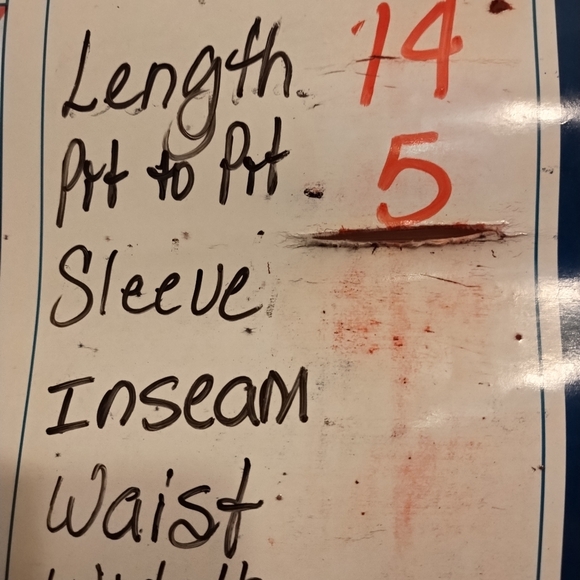 Length. 14
Pit to Pit 5
Sleeve
Inseam
Waist